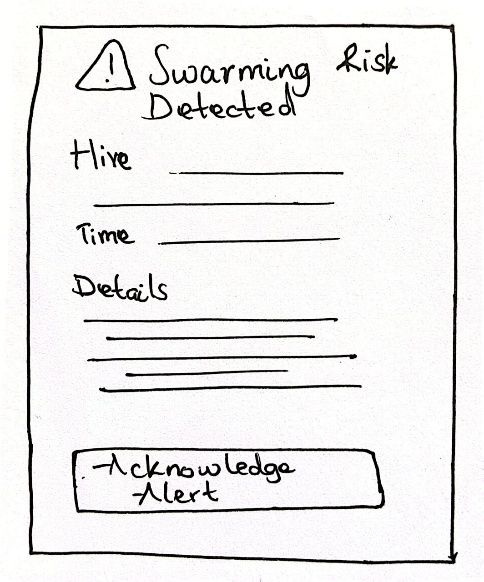 ! Swarming Risk
Detected
Hive
Time
Details
Acknowledge
Alert